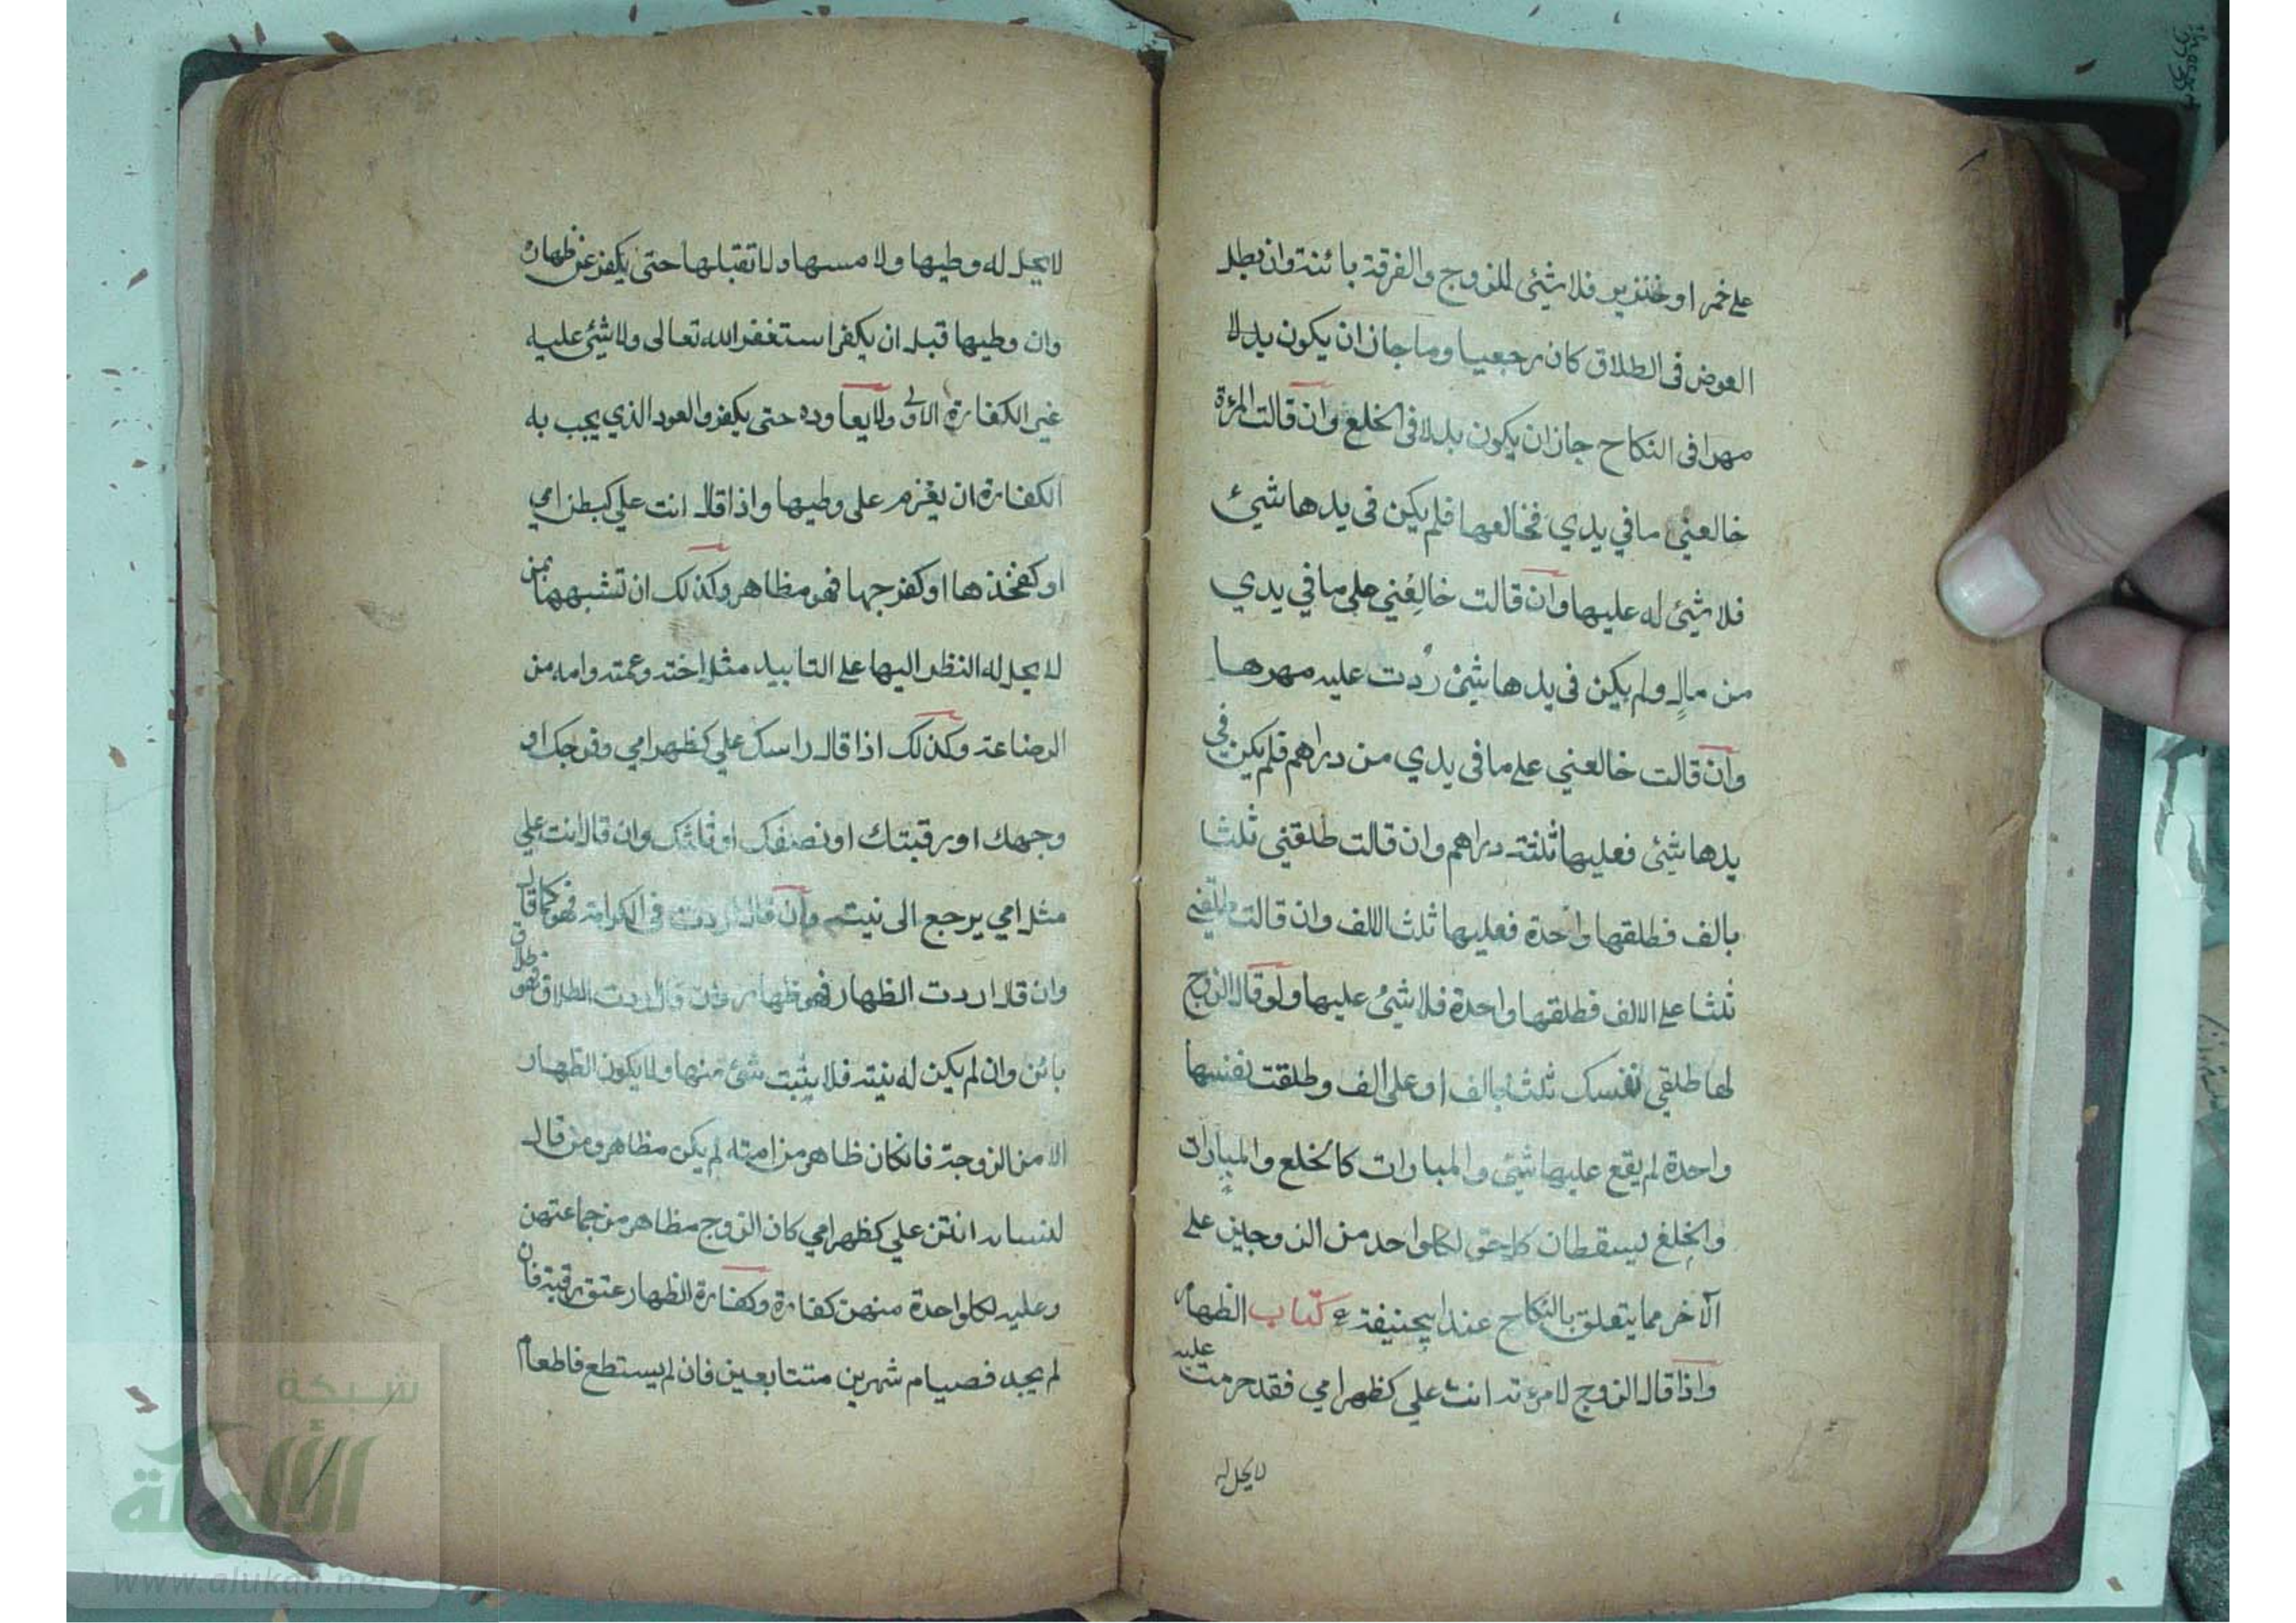 على خمر او خنزير فلا شيئ للزوج والفرقة بائنة وان بطل
العوض فى الطلاق كان رجعيا وما جاز ان يكون بدلا
مهرا فى النكاح جاز ان يكون بدلا فى الخلع وان قالت المرءة
خالعني ما في يدي فخالعها فلم يكن فى يدها شيئ
فلا شيئ له عليها وان قالت خالعني على ما في يدي
من مال ولم يكن فى يدها شيئ ردت عليه مهرها
وان قالت خالعني على ما فى يدي من دراهم فلم يكن في
يدها شيئ فعليها ثلثة دراهم وان قالت طلقني ثلثا
بالف فطلقها واحدة فعليها ثلث الالف وان قالت طلقني
ثلثا على الالف فطلقها واحدة فلا شيئ عليها ولو قال الزوج
لها طلقي نفسك ثلثا بالف او على الف وطلقت نفسها
واحدة لم يقع عليها شيئ والمبارات كالخلع والمبارات
والخلع يسقطان كل حق لكل واحد من الزوجين على
الآخر مما يتعلق بالنكاح عند ابيحنيفة كتاب الظهار
واذا قال الزوج لامرءته انت علي كظهر امي فقد حرمت عليه
لا يحل له
لا يحل له وطيها ولا مسها ولا تقبلها حتى يكفر عن ظهاره
وان وطيها قبل ان يكفر استغفر الله تعالى ولا شيئ عليه
غير الكفارة الاولى ولا يعاوده حتى يكفر والعود الذي يجب به
الكفارة ان يعزم على وطيها واذا قال انت علي كبطن امي
او كفخذها او كفرجها فهو مظاهر وكذلك ان تشبهها بمن
لا يحل له النظر اليها على التابيد مثل اخته وعمته وامه من
الرضاعة وكذلك اذا قال راسك علي كظهر امي وفرجك او
وجهك او رقبتك او نصفك او ثلثك وان قال انت علي
مثل امي يرجع الى نيته وان قال اردت فى الكرامة فهو كما قال
وان قال اردت الظهار فهو ظهار وان قال اردت الطلاق فهو طلاق
بائن وان لم يكن له نيته فلا يثبت شيئ منها ولا يكون الظهار
الا من الزوجة فانكان ظاهر من امته لم يكن مظاهر ومن قال
لنسائه انتن علي كظهر امي كان الزوج مظاهر من جماعتهن
وعليه لكل واحدة منهن كفارة وكفارة الظهار عتق رقبة فان
لم يجد فصيام شهرين متتابعين فان لم يستطع فاطعام
شبكة
الألوكة
www.alukah.net